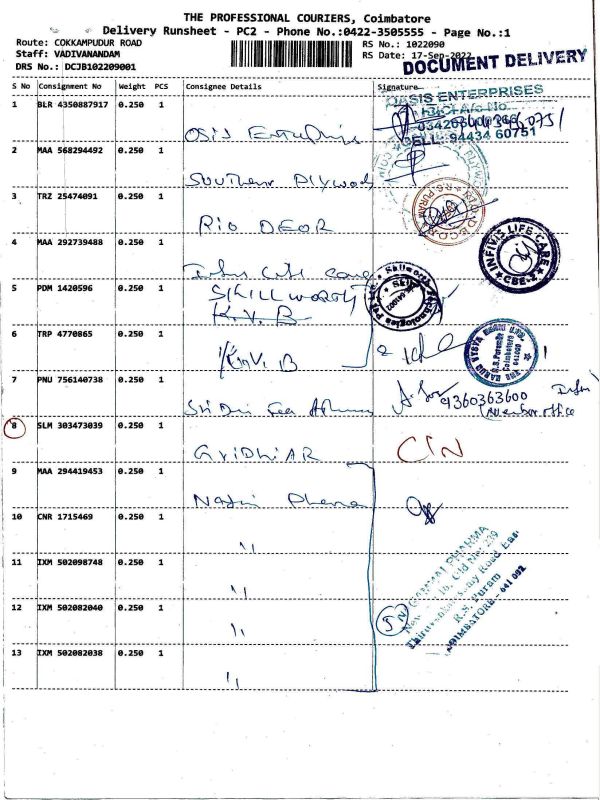 THE PROFESSIONAL COURIERS, Coimbatore
Delivery Runsheet - PC2 - Phone No.:0422-3505555 - Page No.:1
Route: COKKAMPUDUR ROAD
Staff: VADIVANANDAM
DRS No.: DCJB102209001
RS No.: 1022090
RS Date: 17-Sep-2022
DOCUMENT DELIVERY
S No Consignment No Weight PCS Consignee Details Signature
1 BLR 4350887917 0.250 1
OASIS ENTERPRISES
CELL: 94434 60751
2 MAA 568294492 0.250 1 Southern Plywoods
3 TRZ 25474091 0.250 1 RIO DEOR
R.S. PURAM
4 MAA 292739488 0.250 1
INFIVIS LIFE CARE
CBE-2
5 PDM 1420596 0.250 1 SKILLWORTH
K.V.B
Skillworth Technologies Pvt Ltd.
6 TRP 4770865 0.250 1 K.V.B
THE KARUR VYSYA BANK LTD.
R.S.Puram
Coimbatore
641002
7 PNU 756140738 0.250 1
9360363600
8 SLM 303473039 0.250 1 GRIDHIAR CIN
9 MAA 294419453 0.250 1
10 CNR 1715469 0.250 1 "
11 IXM 502098748 0.250 1 "
12 IXM 502082040 0.250 1 "
13 IXM 502082038 0.250 1 "
5
PHARMA
Old No: 239
R.S. Puram
COIMBATORE - 641 002